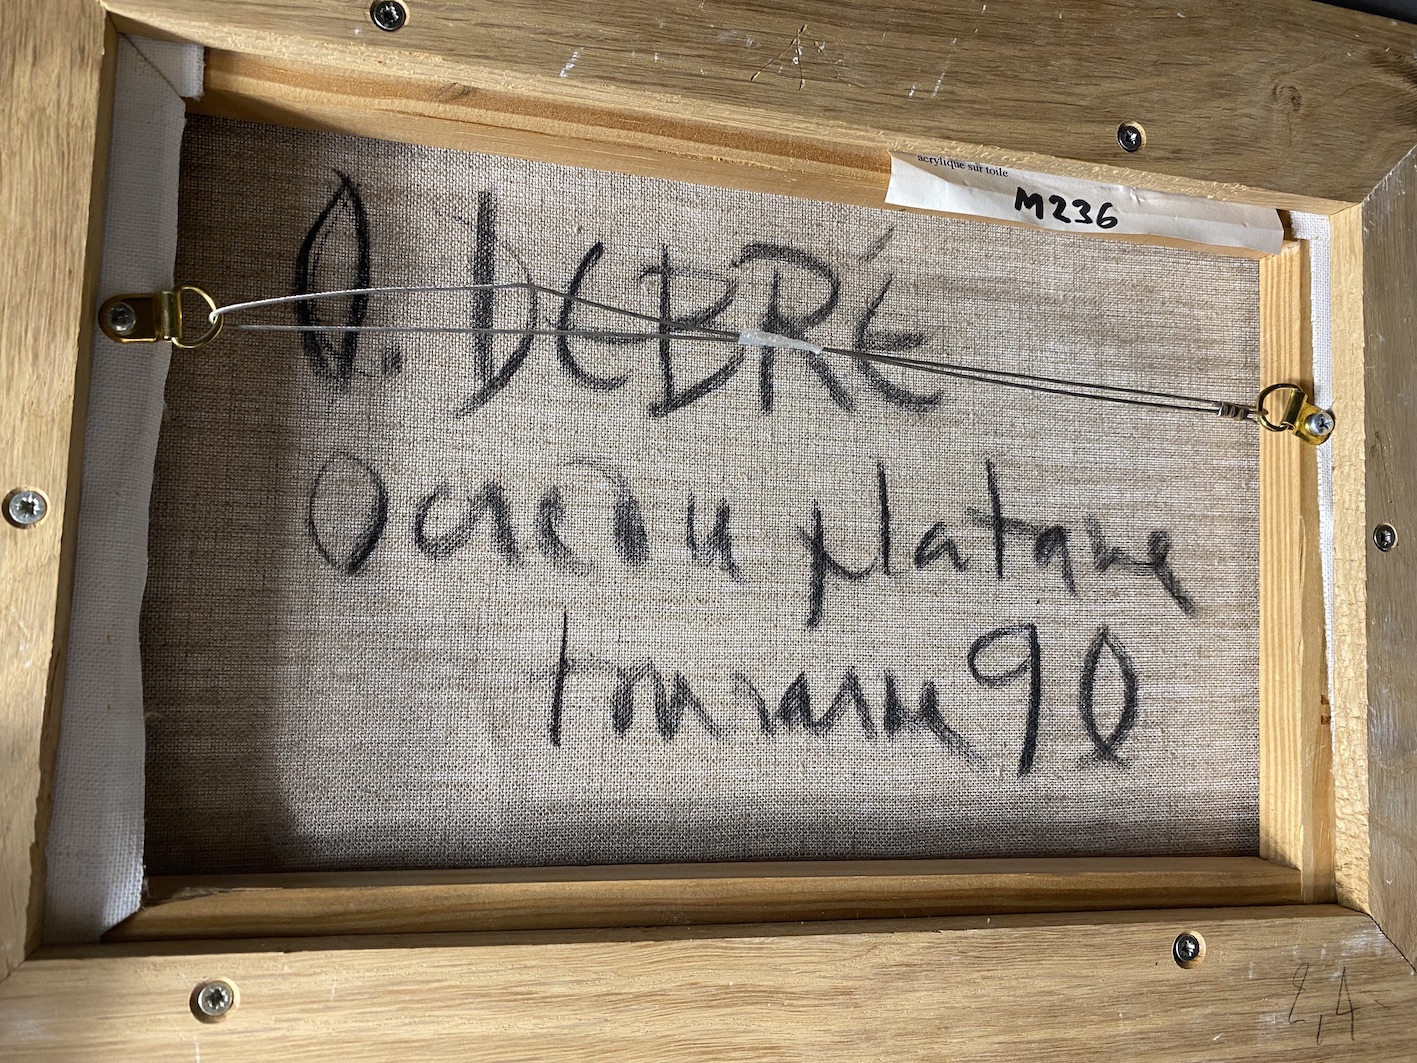 acrylique sur toile
M236
O. DEBRÉ
Ocre du platane
touraine 90
2,4